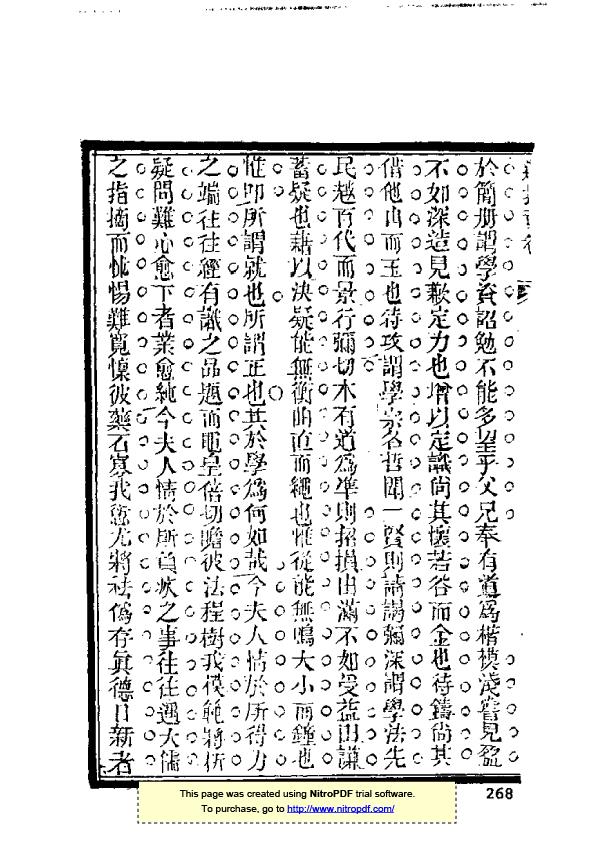 於簡册謂學資詔勉不能多望乎父兄奉有道為楷模淺嘗見盈
不如深造見歉定力也增以定識尚其懷若谷而金也待鑄尚其
借他山而玉也待攻謂學宗名哲聞一賢則請謁彌深謂學法先
民越百代而景行彌切木有道為準則招損由滿不如受益由謙
蓄疑也藉以決疑能無衡曲直而繩也惟從能無鳴大小而鐘也
惟叩所謂就也所謂正也其於學為何如哉今夫人情於所得力
之端往往經有識之品題而黽皇倍切瞻彼法程樹我模範將析
疑問難心愈下者業愈純今夫人情於所負疚之事往往遇大儒
之指摘而怵惕難寬懍彼藥石寡我愆尤將袪偽存眞德日新者
268
This page was created using NitroPDF trial software.
To purchase, go to http://www.nitropdf.com/